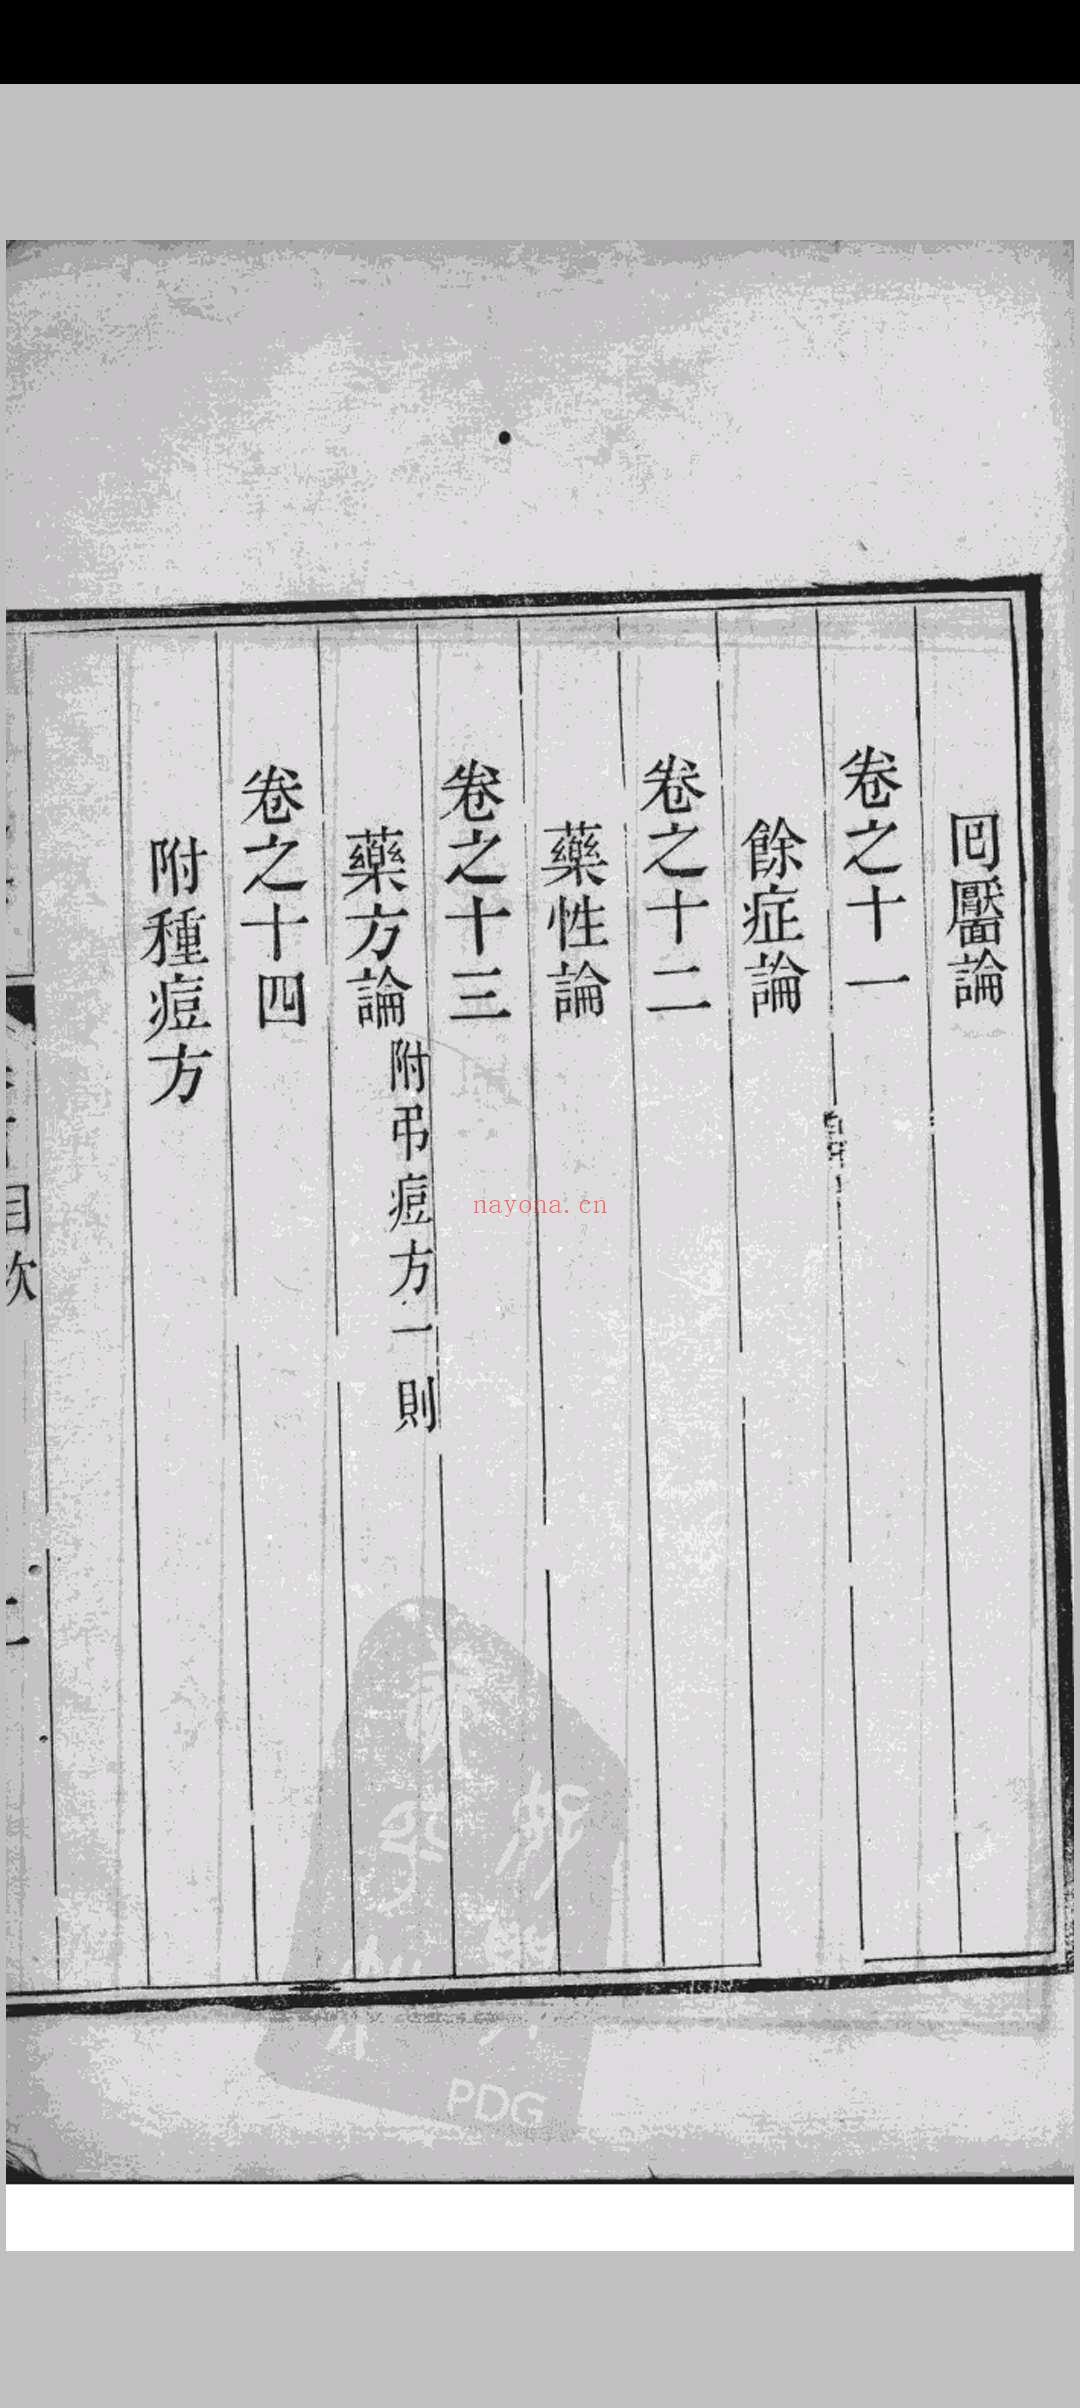 囘靨論
卷之十一
餘症論
卷之十二
藥性論
卷之十三
藥方論附弔痘方一則
卷之十四
附種痘方
目次
二
nayona.cn
PDG